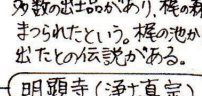 多数の出土品があり、梶の森
まつられたという。梶の池か
出たとの伝説がある。
明顕寺(浄土真宗)